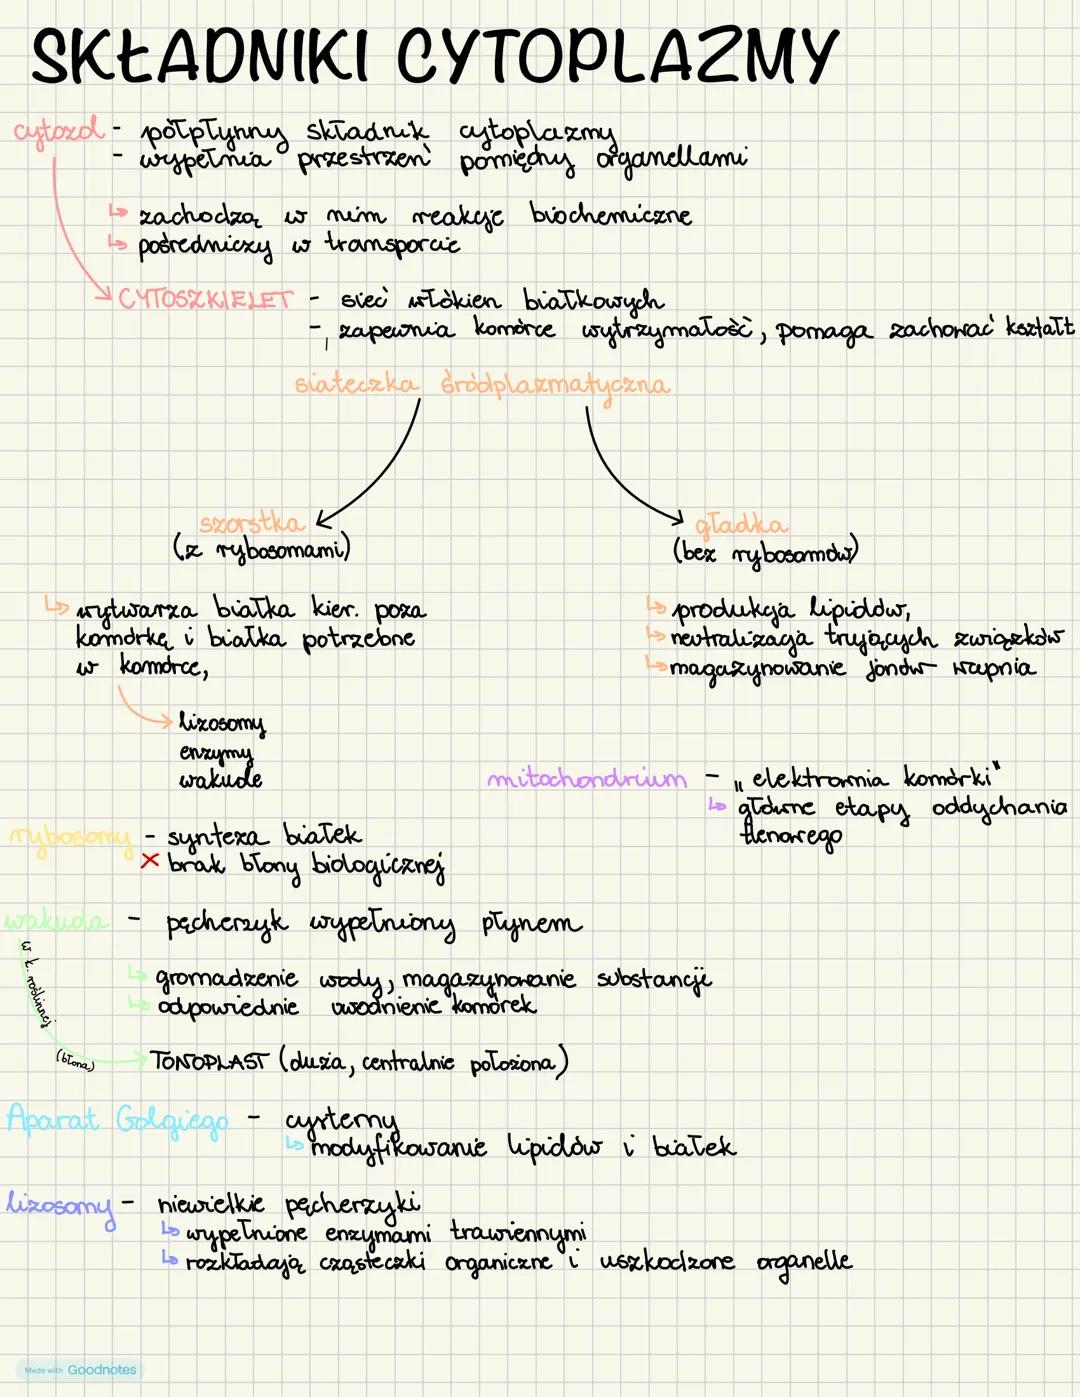 SKŁADNIKI CYTOPLAZMY
cytozol - półpłynny składnik cytoplazmy
- wypełnia przestrzeń pomiędzy organellami
↳ zachodzą w nim reakcje biochemiczne
↳ pośredniczy w transporcie
CYTOSZKIELET - sieć włókien białkowych
- zapewnia komórce wytrzymałość, pomaga zachować kształt
siateczka śródplazmatyczna
szorstka
(z rybosomami)
gładka
(bez rybosomów)
↳ wytwarza białka kier. poza
komórkę i białka potrzebne
w komórce,
lizosomy
enzymy
wakuole
↳ produkcja lipidów,
↳ neutralizacja trujących związków
↳ magazynowanie jonów wapnia
mitochondrium - „elektrownia komórki"
↳ główne etapy oddychania
tlenowego
rybosomy - synteza białek
× brak błony biologicznej
wakuola - pęcherzyk wypełniony płynem
↳ gromadzenie wody, magazynowanie substancji
↳ odpowiednie uwodnienie komórek
w k. roślinnej
(błona)
TONOPLAST (duża, centralnie położona)
Aparat Golgiego - cysterny
↳ modyfikowanie lipidów i białek
lizosomy - niewielkie pęcherzyki
↳ wypełnione enzymami trawiennymi
↳ rozkładają cząsteczki organiczne i uszkodzone organelle
Made with Goodnotes